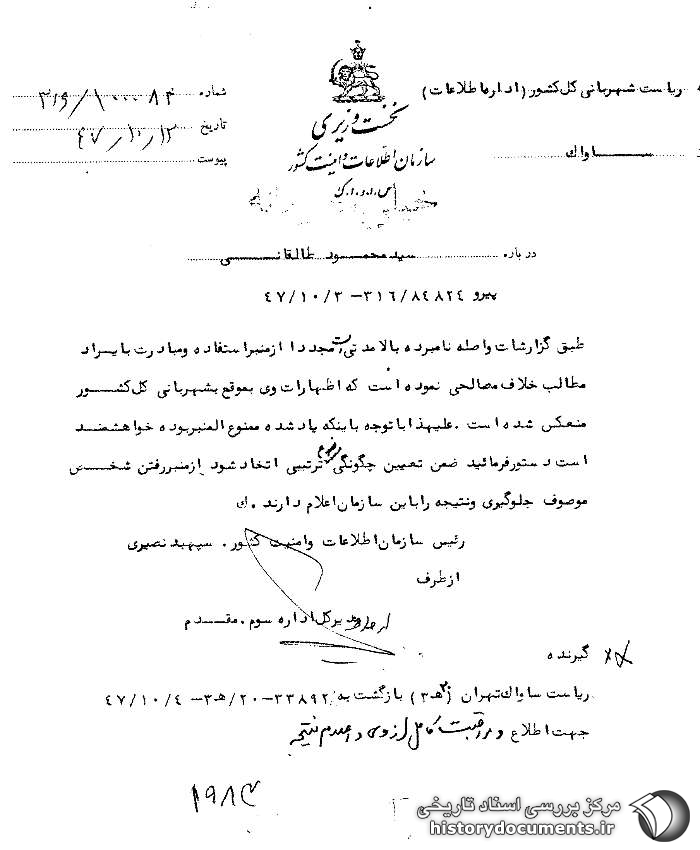 ریاست شهربانی کل کشور (اداره اطلاعات)
ساواک
نخست وزیری
سازمان اطلاعات و امنیت کشور
س.ا.و.ا.ک
شماره ۳۱۶/۱۰۰۰۸۴
تاریخ ۴۷/۱۰/۱۲
پیوست
درباره سید محمود طالقانی
پیرو ۳۱۶/۸۴۸۲۴ - ۴۷/۱۰/۳
طبق گزارشات واصله نامبرده بالا مدتی است مجددا از منبر استفاده و مبادرت بایراد
مطالب خلاف مصالحی نموده است که اظهارات وی بموقع بشهربانی کل کشور
منعکس شده است . علیهذا با توجه باینکه یاد شده ممنوع المنبر بوده خواهشمند
است دستور فرمائید ضمن تعیین چگونگی موضوع ترتیبی اتخاذ شود از منبر رفتن شخص
موصوف جلوگیری و نتیجه را باین سازمان اعلام دارند . ک
رئیس سازمان اطلاعات وامنیت کشور . سپهبد نصیری
از طرف
مدیر کل اداره سوم . مقدم
گیرنده
ریاست ساواک تهران (۲۰ ه‍ ۳) بازگشت به ۳۳۸۹۲-۲۰/ه‍ ۳ - ۴۷/۱۰/۴
جهت اطلاع و مراقبت کامل از وی و اعلام نتیجه
۱۹۸۳
مرکز بررسی اسناد تاریخی
historydocuments.ir